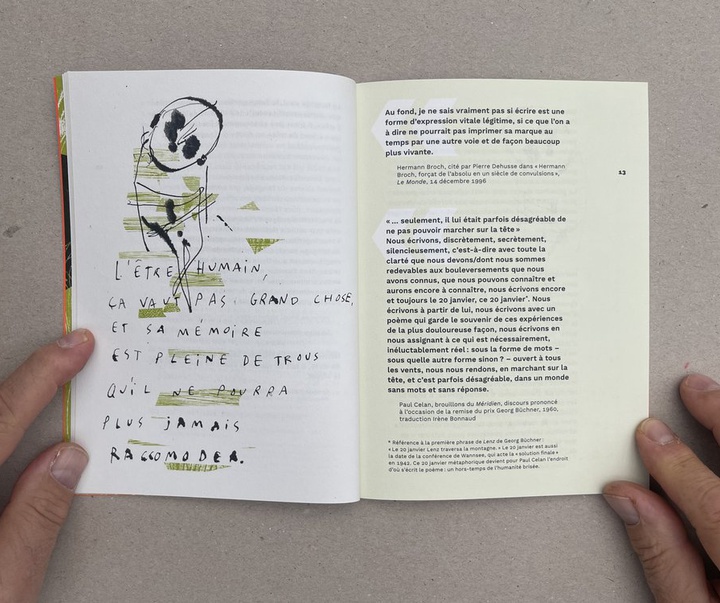 L'ÊTRE HUMAIN,
ÇA VAUT PAS GRAND CHOSE,
ET SA MÉMOIRE
EST PLEINE DE TROUS
QU'IL NE POURRA
PLUS JAMAIS
RACCOMODER.
Au fond, je ne sais vraiment pas si écrire est une
forme d'expression vitale légitime, si ce que l'on a
à dire ne pourrait pas imprimer sa marque au
temps par une autre voie et de façon beaucoup
plus vivante.
Hermann Broch, cité par Pierre Dehusse dans « Hermann
Broch, forçat de l'absolu en un siècle de convulsions »,
Le Monde, 14 décembre 1996
13
« ... seulement, il lui était parfois désagréable de
ne pas pouvoir marcher sur la tête »
Nous écrivons, discrètement, secrètement,
silencieusement, c'est-à-dire avec toute la
clarté que nous devons/dont nous sommes
redevables aux bouleversements que nous
avons connus, que nous pouvons connaître et
aurons encore à connaître, nous écrivons encore
et toujours le 20 janvier, ce 20 janvier*. Nous
écrivons à partir de lui, nous écrivons avec un
poème qui garde le souvenir de ces expériences
de la plus douloureuse façon, nous écrivons en
nous assignant à ce qui est nécessairement,
inéluctablement réel : sous la forme de mots –
sous quelle autre forme sinon ? – ouvert à tous
les vents, nous nous rendons, en marchant sur la
tête, et c'est parfois désagréable, dans un monde
sans mots et sans réponse.
Paul Celan, brouillons du Méridien, discours prononcé
à l'occasion de la remise du prix Georg Büchner, 1960,
traduction Irène Bonnaud
* Référence à la première phrase de Lenz de Georg Büchner :
« Le 20 janvier Lenz traversa la montagne. » Le 20 janvier est aussi
la date de la conférence de Wannsee, qui acte la « solution finale »
en 1942. Ce 20 janvier métaphorique devient pour Paul Celan l'endroit
d'où s'écrit le poème : un hors-temps de l'humanité brisée.